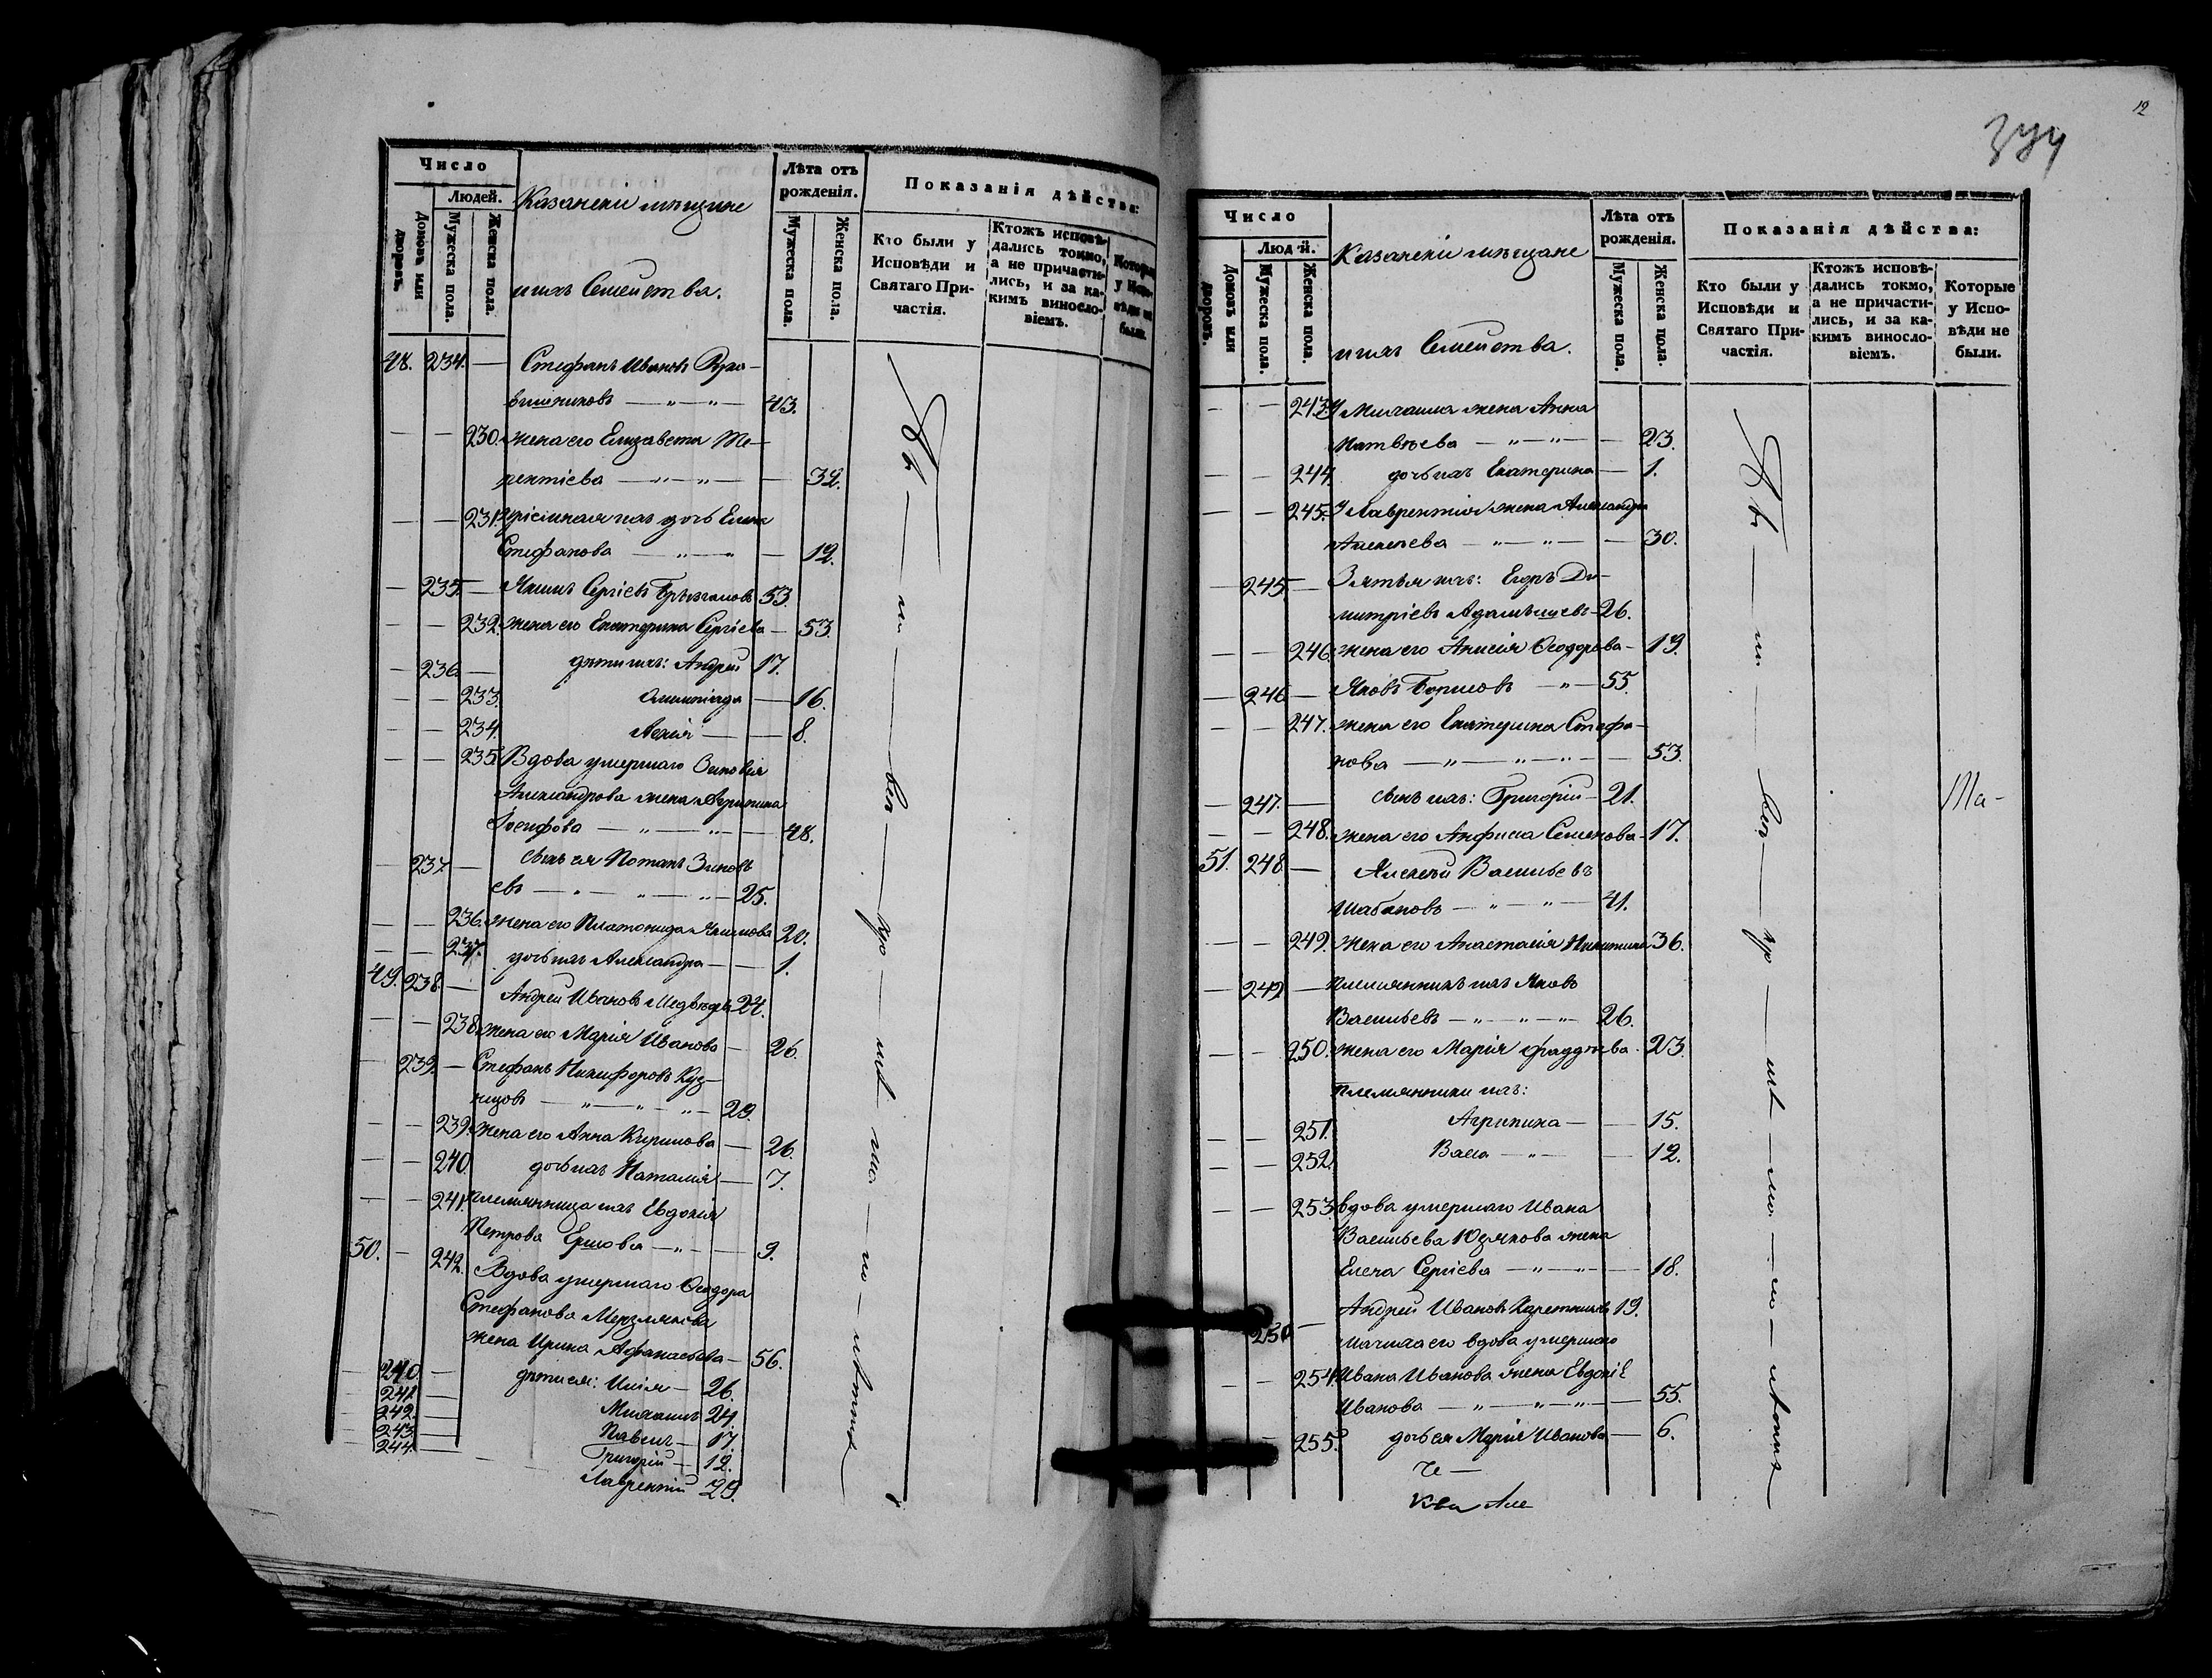 Число
Людей.
Домовъ или дворовъ.
Мужеска пола.
Женска пола.
Казанскіи мѣщане
и ихъ Семейства.
Лѣта отъ рожденія.
Мужеска пола.
Женска пола.
Показанія дѣйства:
Кто были у Исповѣди и Святаго Причастія.
Ктожъ исповѣдались токмо, а не причастились, и за какимъ винословіемъ.
Которые у Исповѣди не были.
48. 234. — Стефанъ Ивановъ
вишниковъ — " — " — 43.
— — 230. жена его Елизавета Те-
рентіева — " — " — — 32.
— — 231. пріемная ихъ дочь Елена
Стефанова — " — " — — 12.
— 235. — Якимъ Сергіевъ 53.
— — 232. жена его Екатерина Сергіева — 53.
— 236. — дѣти ихъ: Андрей 17.
— — 233. Олимпіада — 16.
— — 234. — — 8.
— — 235. Вдова умершаго Зиновія
Александрова жена Агрипина
Іосифова — " — " — — 48.
— 237. — сынъ ея Потапъ Зиновь
евъ — " — " — " — 25.
— — 236. жена его Платонида Якимова 20.
— — 237. дочь ихъ Александра — — 1.
49. 238. — Андрей Ивановъ Медвѣдевъ 24.
— — 238. жена его Марія Иванова — 26.
— 239. — Стефанъ Никифоровъ Куз-
нецовъ — " — " — " — 29.
— — 239. жена его Анна Кирилова — 26.
— — 240. дочь ихъ Наталія — 7.
— — 241. племянница ихъ Евдокія
Петрова Ершова — " — — 9.
50. — 242. Вдова умершаго Ѳеодора
Стефанова Мерзлякова
жена Ирина Афанасьева — 56.
— 240. — дѣти ея: Илія — 26.
— 241. — Михаилъ 24.
— 242. — Павелъ — 17.
— 243. — Григорій — 12.
— 244. — Лаврентій 29.
12
Число
Людей.
Домовъ или дворовъ.
Мужеска пола.
Женска пола.
Казанскіи мѣщане
и ихъ Семейства.
Лѣта отъ рожденія.
Мужеска пола.
Женска пола.
Показанія дѣйства:
Кто были у Исповѣди и Святаго Причастія.
Ктожъ исповѣдались токмо, а не причастились, и за какимъ винословіемъ.
Которые у Исповѣди не были.
— — 243. У Михаила жена Анна
Матвѣева — " — " — — 23.
— — 244. дочь ихъ Екатерина — 1.
— — 245. У Лаврентія жена Александра
Алексѣева — " — " — — 30.
— 245. — Зятья ихъ: Егоръ Ди-
митріевъ 26.
— — 246. жена его Анисія Ѳеодорова — 19.
— 246 — Яковъ Борисовъ — " — 55.
— — 247. жена его Екатерина Стефа-
нова — " — " — " — — 53.
— 247. — сынъ ихъ: Григорій — 21.
— — 248. жена его Анфиса Семенова — 17.
51. 248 — Алексѣй Васильевъ
Шабановъ — " — " — 41.
— — 249. жена его Анастасія Никитина 36.
— 249 — Племянникъ ихъ Яковъ
Васильевъ — " — " — 26.
— — 250. жена его Марія Фаддѣева 23.
Племянники ихъ:
— — 251. Агрипина — — 15.
— — 252. Васса — " — — 12.
— — 253. вдова умершаго Ивана
Васильева Юзякова жена
Елена Сергіева — " — " — — 18.
250 — Андрей Ивановъ Каретниковъ 19.
Мачиха его вдова умершаго
— — 254. Ивана Иванова жена Евдокія
Иванова — " — " — " — — 55.
— 255. дочь ея Марія Иванова — 6.